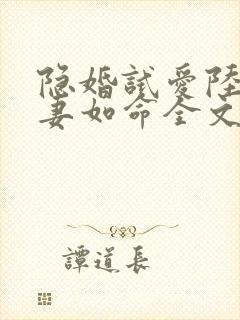 隐婚試愛陸
妻如命全文
譚道長